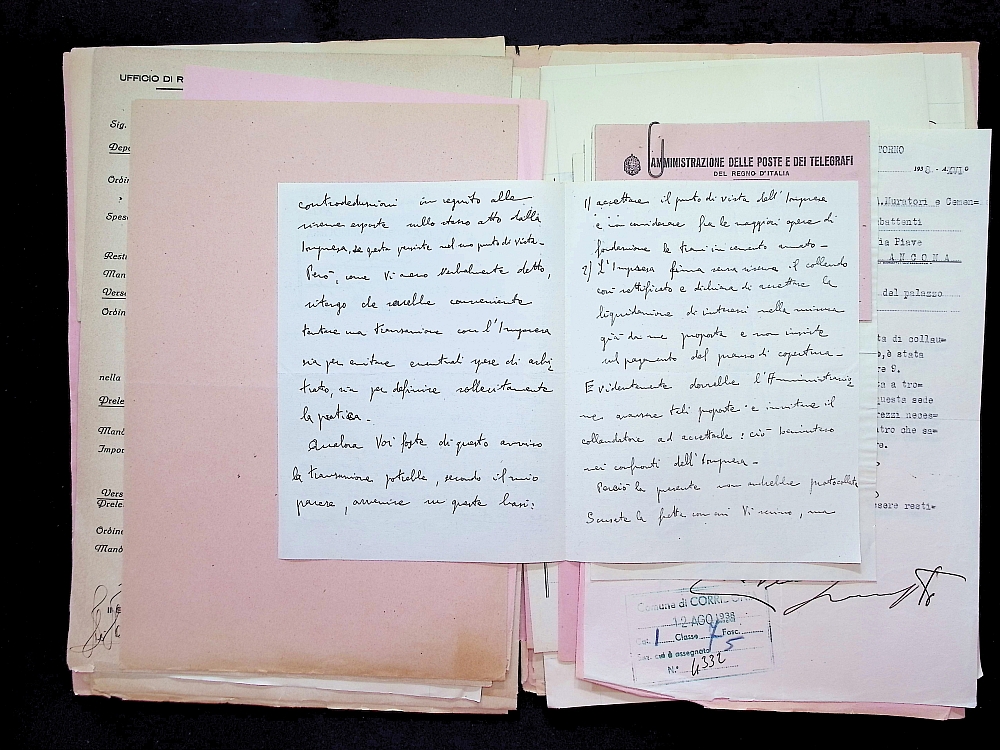 UFFICIO DI R
Sig.
Depo
Ordin
Spes
Resti
Man
Verso
Ordin
nella
Prele
Mand
Impor
Vers
Prele
Ordine
Mand
controdeduzioni in seguito alle
riserve esposte nello stesso atto dalla
Impresa, se questa persiste nel suo punto di vista.-
Però, come Vi avevo verbalmente detto,
ritengo che sarebbe conveniente
tentare una transazione con l'Impresa
sia per evitare eventuali spese di arbi
trato, sia per definire sollecitamente
la pratica.-
Qualora Voi foste di questo avviso
la transazione potrebbe, secondo il mio
parere, avvenire su queste basi:
AMMINISTRAZIONE DELLE POSTE E DEI TELEGRAFI
DEL REGNO D'ITALIA
1) accettare il punto di vista dell'Impresa
e non considerare fra le maggiori opere di
fondazione le travi in cemento armato.-
2) L'Impresa firma senza riserva il collaudo
così rettificato e dichiara di accettare la
liquidazione di interessi nella misura
già da me proposta e non insiste
sul pagamento del prezzo di copertura.-
Evidentemente dovrebbe l'Amministrazio
ne avanzare tali proposte e invitare il
collaudatore ad accettarle: ciò beninteso
nei confronti dell'Impresa.-
Perciò la presente non andrebbe protocollata
Scusate la fretta con cui Vi scrivo, ma
TORNO
193 8 - A. XVI°
.Muratori e Cemen=
battenti
ia Piave
ANCONA
del palazzo
ta di collau=
o,è stata
re 9.
ta a tro=
questa sede
rezzi neces=
tro che sa=
re.
ssere resti=
Comune di CORRIDONIA
12 AGO 1938
Cat. 1 Classe Fasc. 5
Sez. cui è assegnato
N.° 4332